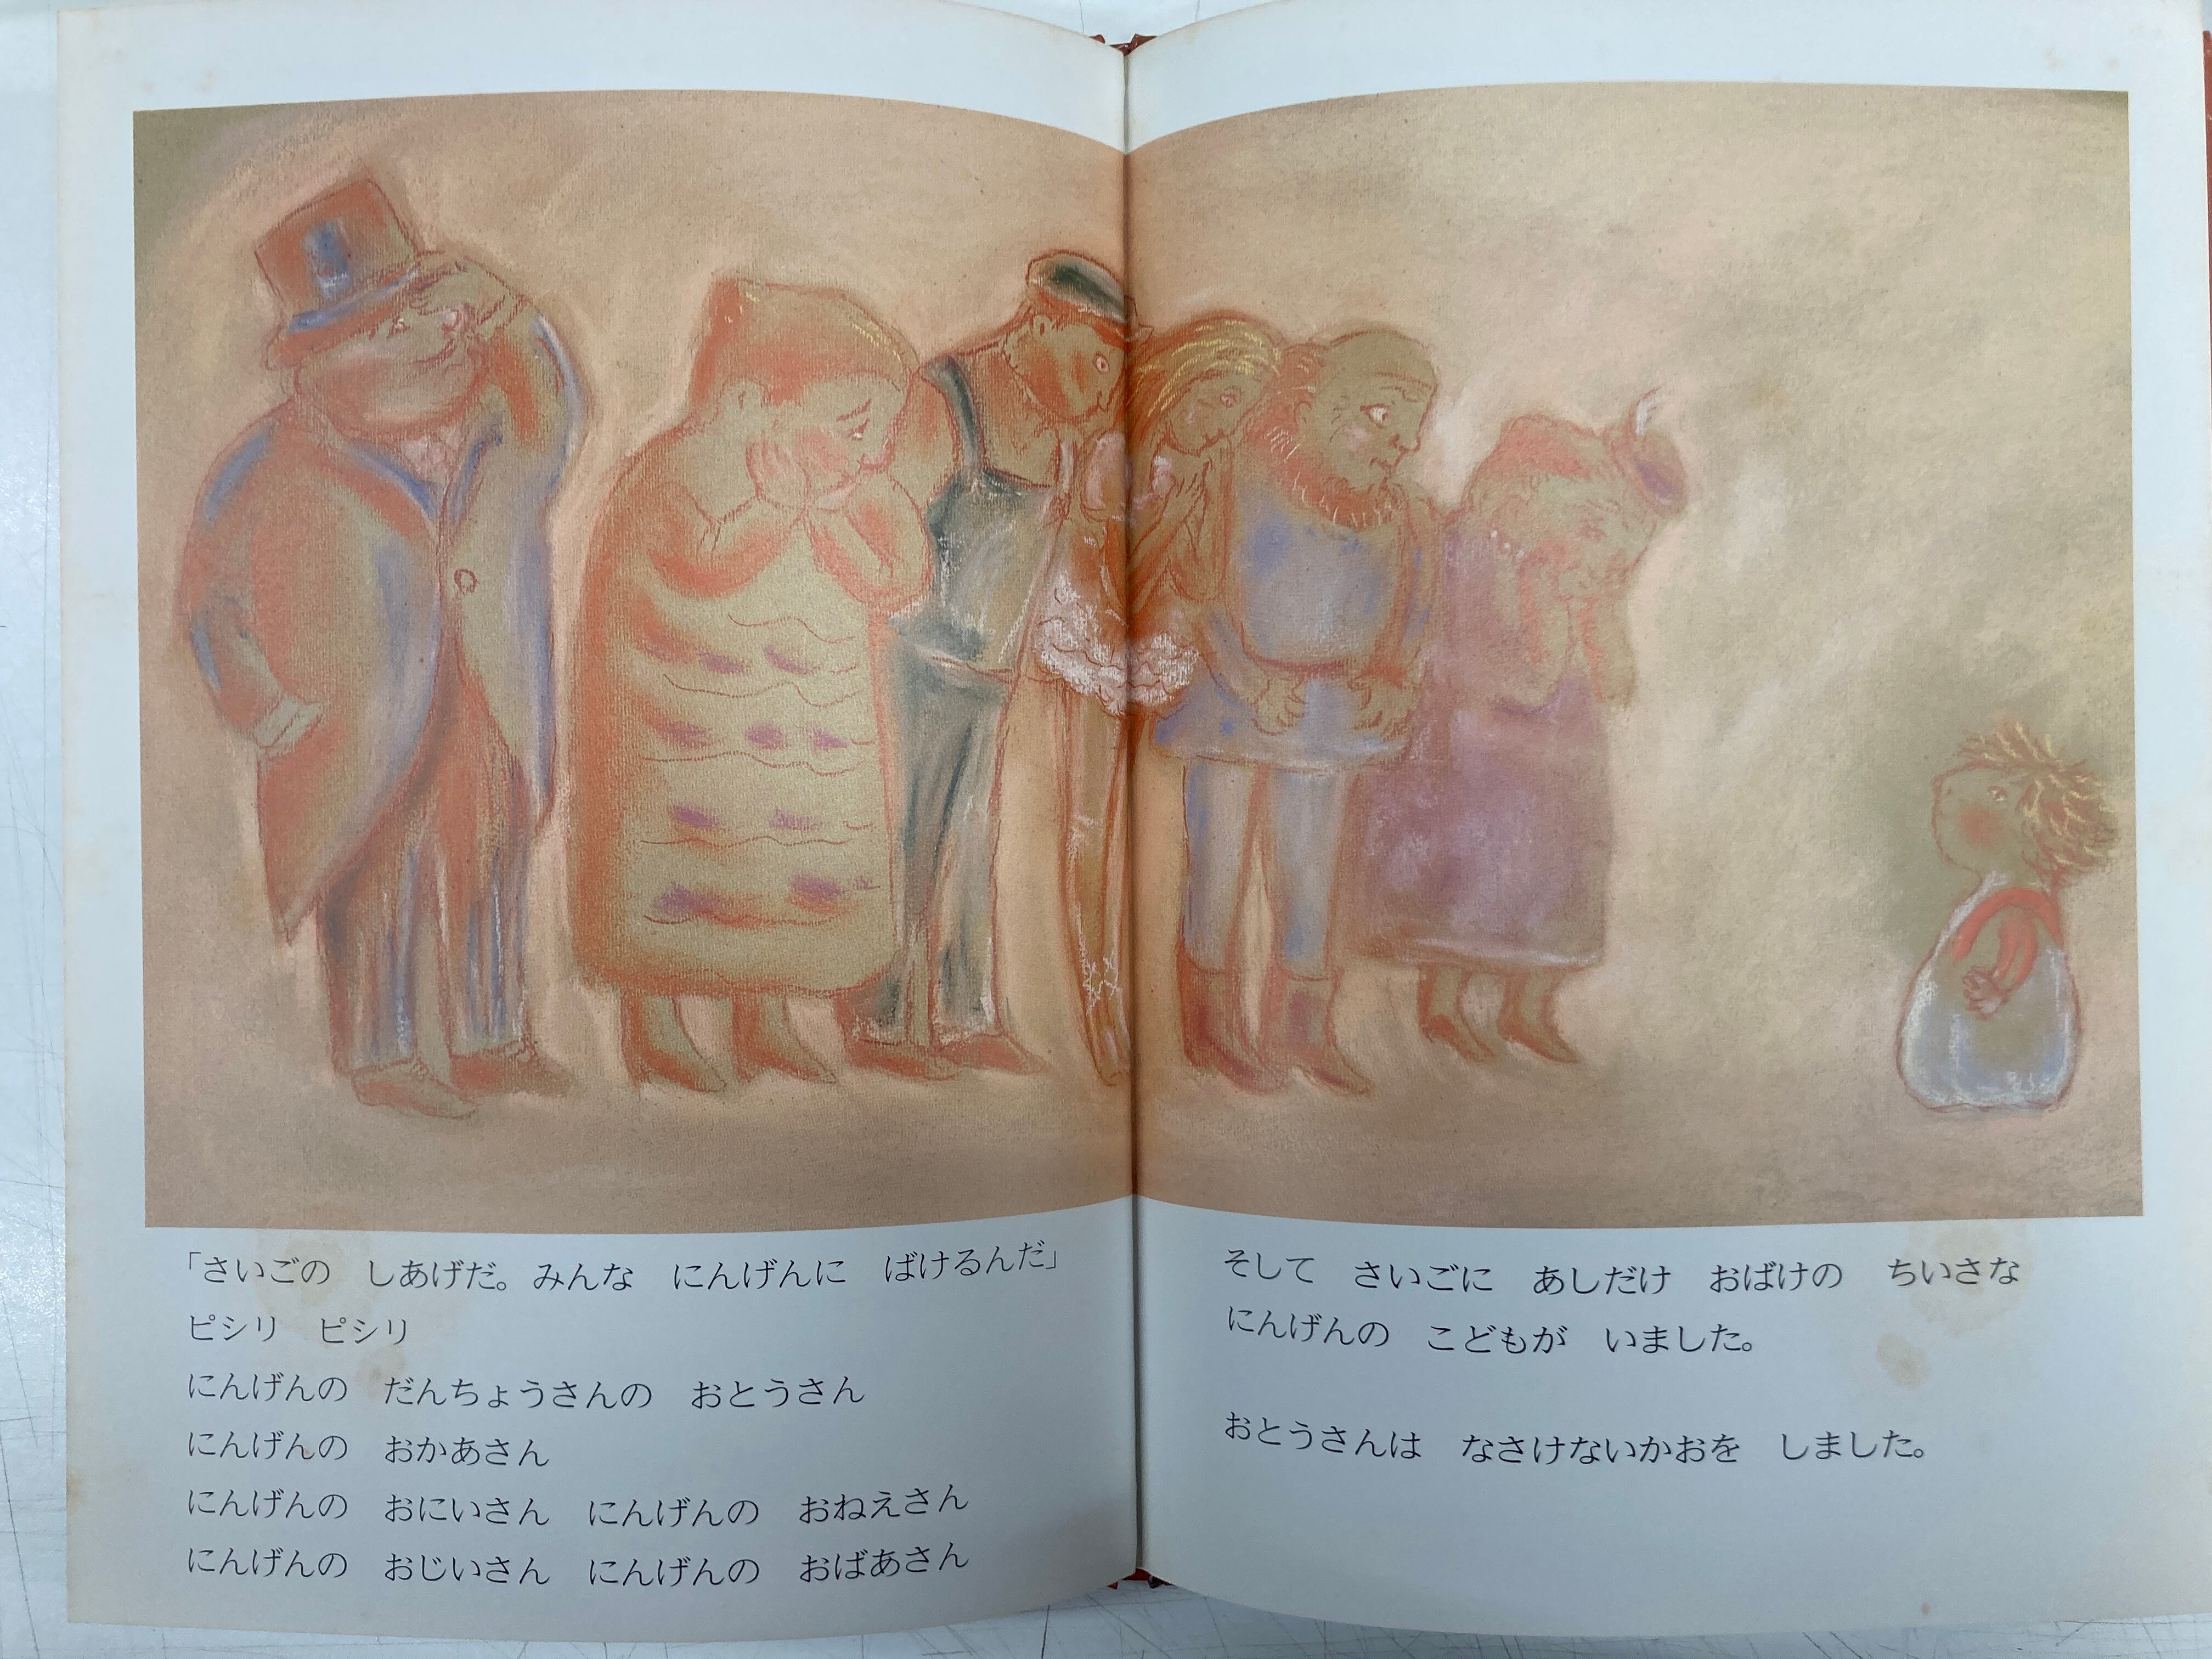 「さいごの　しあげだ。みんな　にんげんに　ばけるんだ」
ピシリ　ピシリ
にんげんの　だんちょうさんの　おとうさん
にんげんの　おかあさん
にんげんの　おにいさん　にんげんの　おねえさん
にんげんの　おじいさん　にんげんの　おばあさん
そして　さいごに　あしだけ　おばけの　ちいさな
にんげんの　こどもが　いました。
おとうさんは　なさけないかおを　しました。